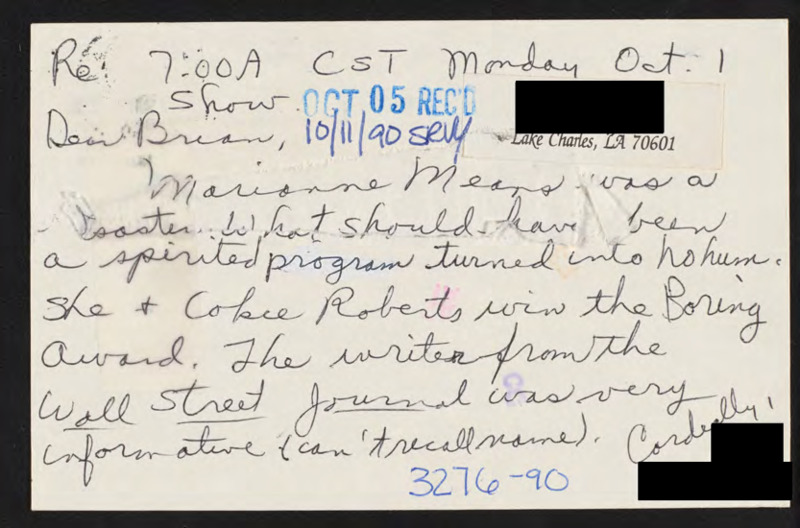 Re: 7:00A CST Monday Oct. 1
Show
OCT 05 REC'D
Lake Charles, LA 70601
Dear Brian,
10/11/90 SRW
Marianne Means was a
isaster. What should have been
a spirited program turned into hohum.
She + Cokie Roberts win the Boring
Award. The writer from the
Wall Street Journal was very
informative (can't recall name).
Cordially,
3276-90